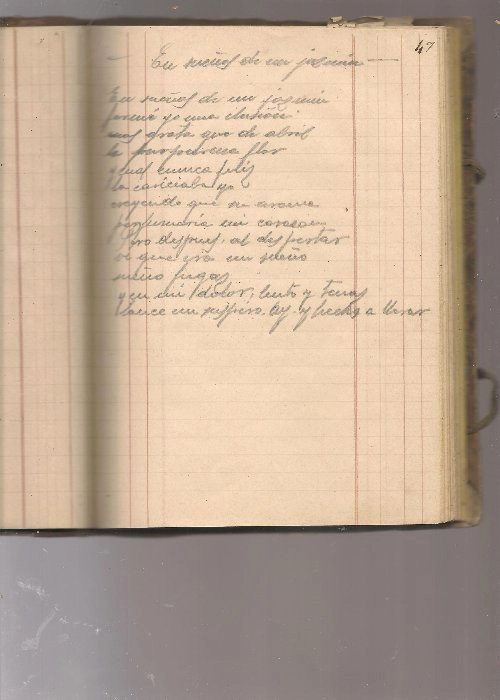 47
— En sueños de un jazmin —
En sueños de un jazmin
formé yo una ilusión
mas grata que de abril
la purpurena flor
y cual nunca feliz
la cariciaba yo
creyendo que su aroma
perfumaria mi corazon
Pero despues, al despertar
vi que era un sueño
sueño fugas
y en mi dolor, lento y tenas
lance un suspiro. Ay. y a llorar